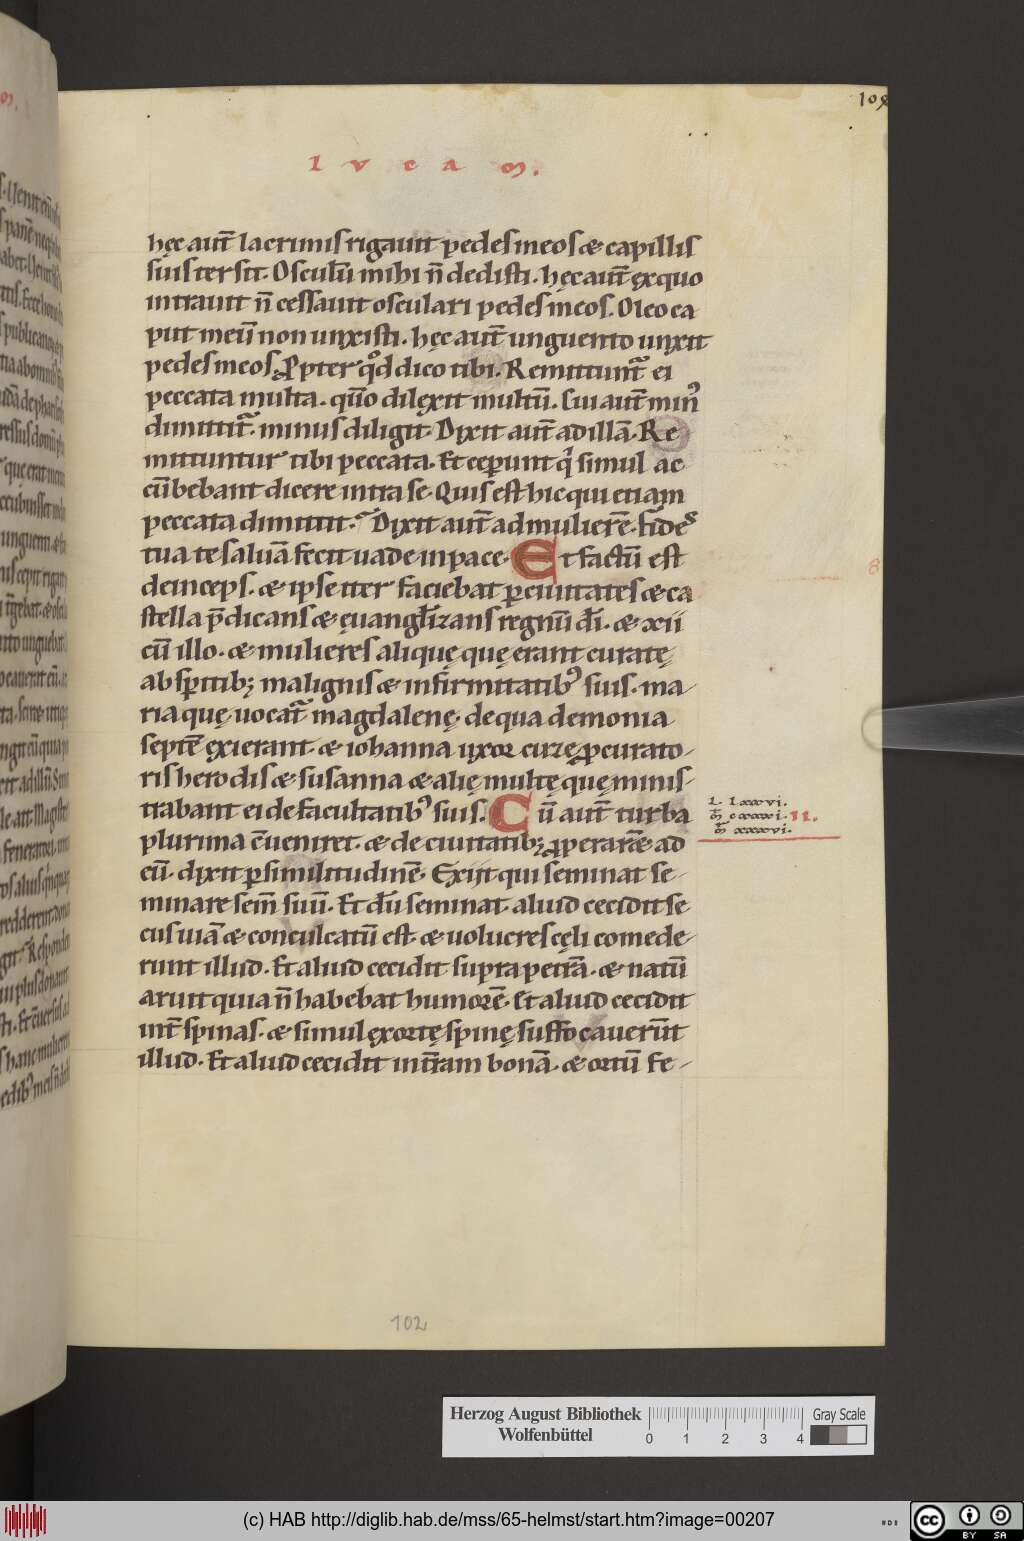 109
l v c a m.
hęc aut̄ lacrimis rigauit pedes meos & capillis
suis tersit. Osculū mihi n̄ dedisti. hęc aut̄ ęx quo
intrauit n̄ cessauit osculari pedes meos. Oleo ca
put meū non unxisti. hęc aut̄ unguento unxit
pedes meos. Ꝓpter qd̄ dico tibi. Remittunt̄ ei
peccata multa. qm̄o dilęxit multū. Cui aut̄ min᾽
dimittit̄. minus diligit. Dixit aut̄ ad illā. Re
mittuntur tibi peccata. Et cęperunt q̇ simul ac
cūbebant dicere intra se. Quis est hic qui etiam
peccata dimittit. Dixit aut̄ ad mulierē. fides
tua te saluā fecit uade in pace. Et factū est
deinceps. & ipse iter faciebat ꝑ ciuitates & ca
stella p̄dicans & ęuangl̄izans regnū dī. & xii
cū illo. & mulieres aliquę quę erant curatę
ab sp̄itib; malignis & infirmitatib᾽ suis. ma
ria quę uocat̄ magdalenę. de qua demonia
septē ęxierant. & iohanna uxor cuzę ꝓcurato
ris herodis & susanna & alię multę quę minis
trabant ei de facultatib᾽ suis. Cū aut̄ turba
plurima c̄ueniret. & de ciuitatib; ꝓperarēt ad
eū. dixit ꝑ similitudinē. Exiit qui seminat se
minare sem̄ suū. Et dū seminat. aliud cecidit se
cus uiā & conculcatū est. & uolucres cęli comede
runt illud. Et aliud cecidit supra petrā. & natū
aruit quia n̄ habebat humorē. Et aliud cecidit
int̄ spinas. & simul ęxortę spinę suffocauerūt
illud. Et aliud cecidit in t̄ram bonā. & ortū fe
8
L. lxxvi.
m̄ cxxxi. II.
m̄ xxxvi.
102
Herzog August Bibliothek
Wolfenbüttel
0 1 2 3 4
Gray Scale
(c) HAB http://diglib.hab.de/mss/65-helmst/start.htm?image=00207
cc BY SA